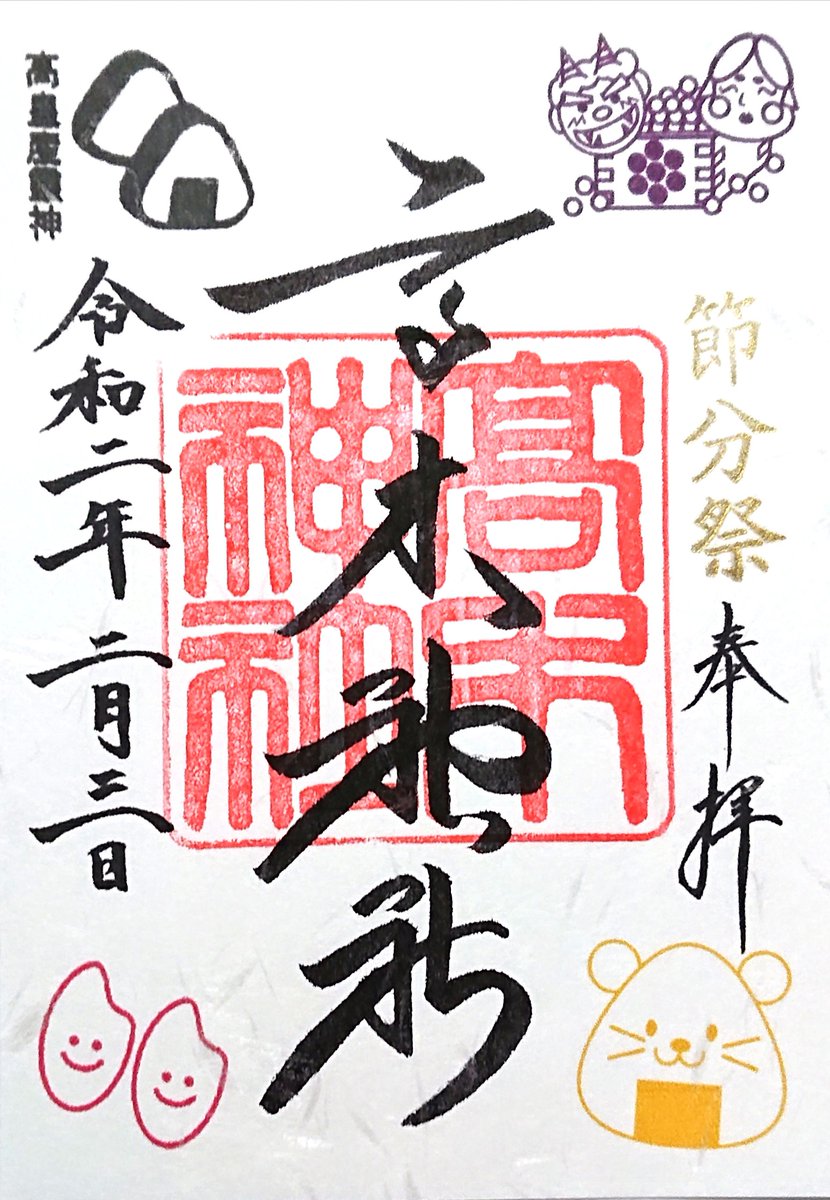 節分祭
奉拝
高木神社
高木
神社
高皇産靈神
令和二年二月三日